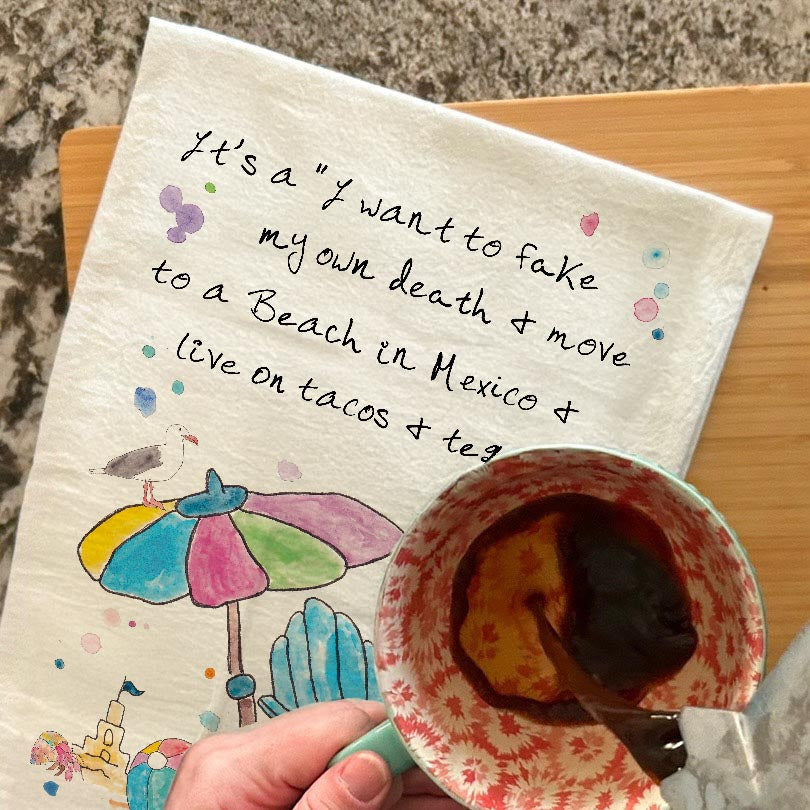 It's a "I want to fake
my own death & move
to a Beach in Mexico &
live on tacos & teq